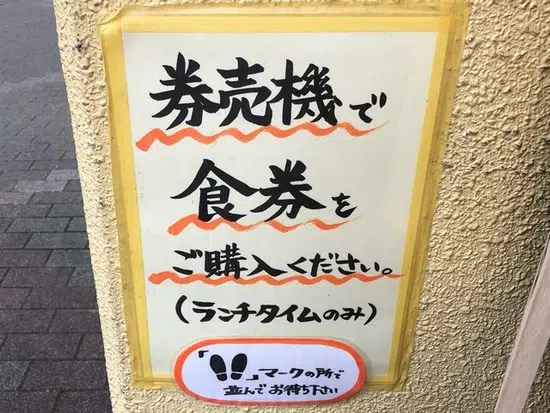 券売機で
食券を
ご購入ください。
(ランチタイムのみ)
「 」マークの所で
並んでお待ち下さい